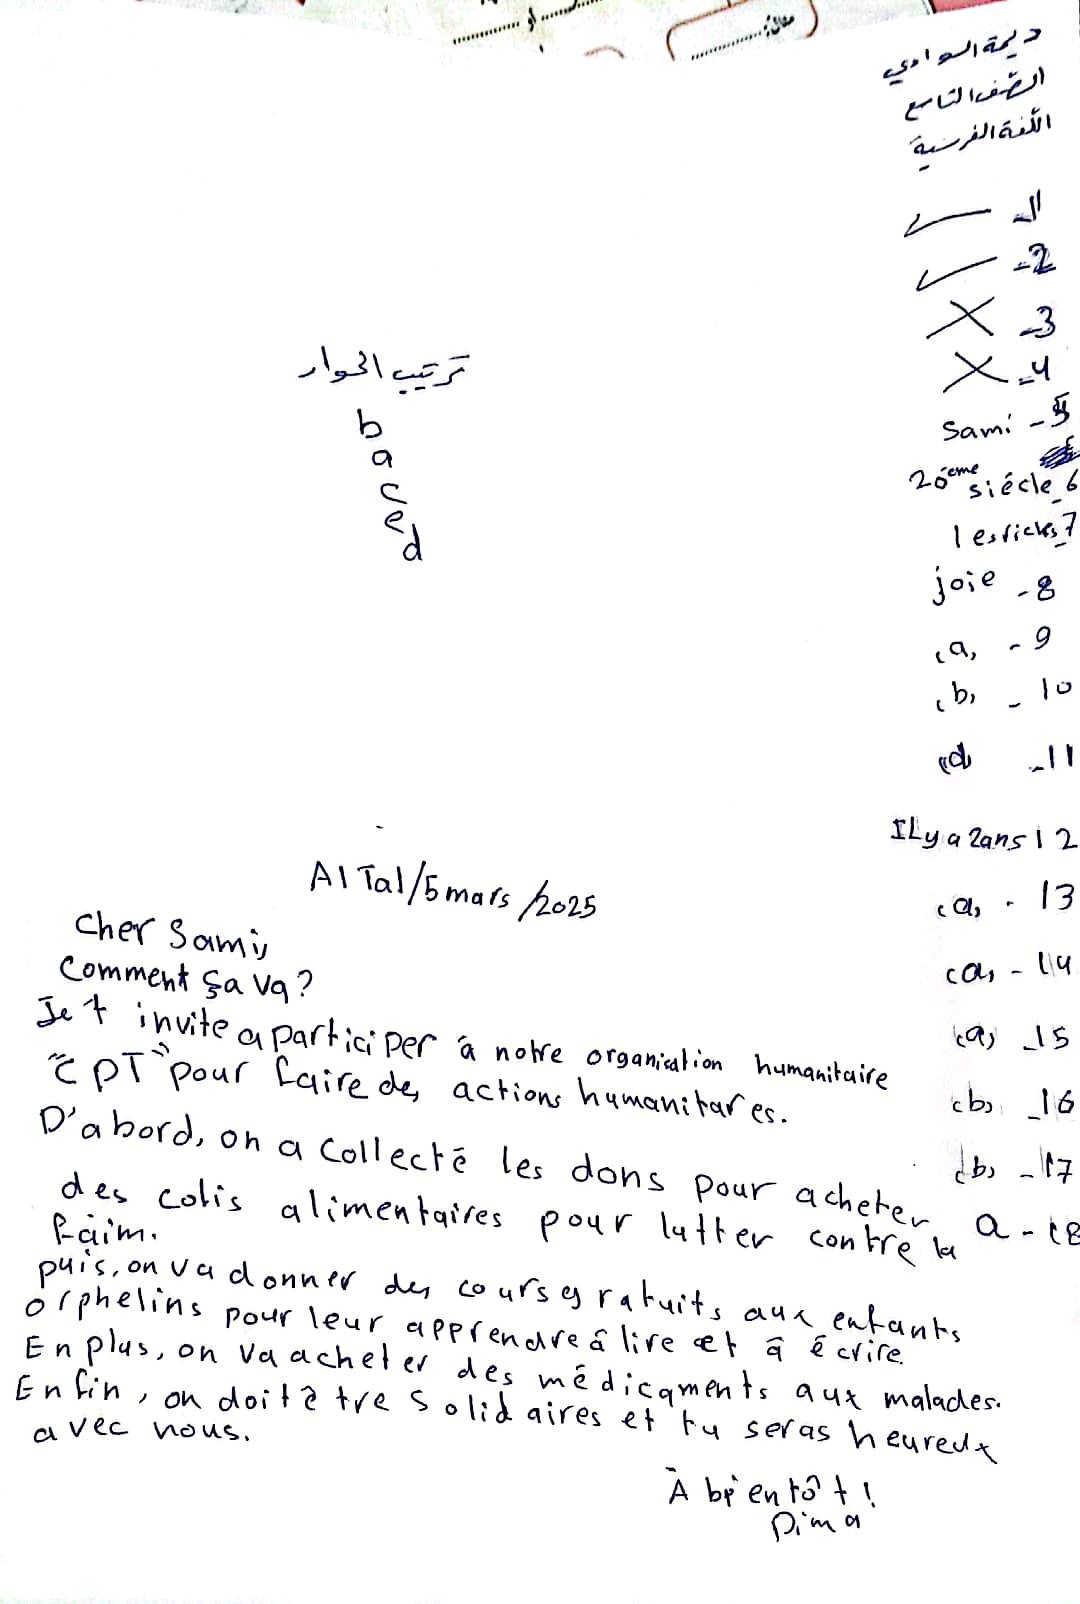 ديمة السوادي
الصّف التاسع
اللّغة الفرنسية
1- ✓
2- ✓
3- X
4- X
5- Sami
6- 20ème siécle
7- les riches
8- joie
9- (a)
10- (b)
11- (d)
12 ILy a 2ans
13- (a)
14- (a)
15- (a)
16- (b)
17- (b)
18- a
ترتيب الحوار
b
a
c
e
d
Al Tal/5 mars/2025
Cher Sami,
Comment ça va?
Je t invite a participer à notre organisation humanitaire
"CPT" pour faire des actions humanitares.
D'abord, on a collecté les dons pour acheter
des colis alimentaires pour lutter contre la
faim.
puis, on va donner des cours gratuits aux enfants
orphelins pour leur apprendre â lire et â écrire.
En plus, on va acheter des médicaments aux malades.
Enfin, on doit être solidaires et tu seras heureux
avec nous.
À bientôt!
Dima